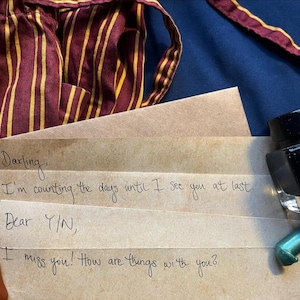 Darling,
I'm counting the days until I see you at last
Dear Y/N,
I miss you! How are things with you?